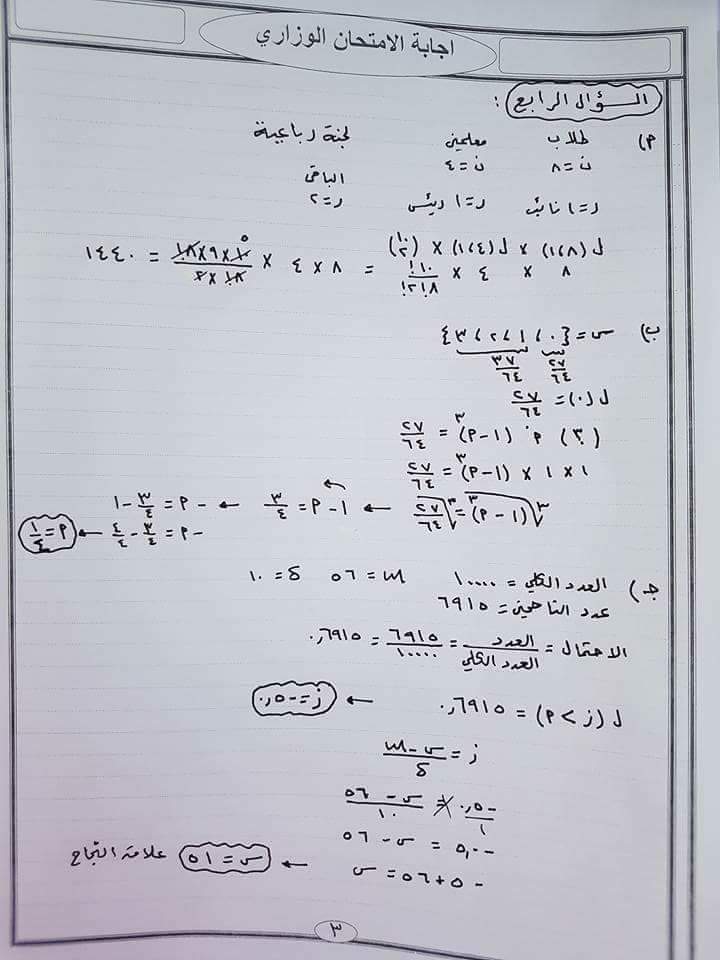 اجابة الامتحان الوزاري
السؤال الرابع :
م) طلاب معلمين لجنة رباعية
ن = ٨ ن = ٤ الباقي
ر = ١ نائب ر = ١ رئيس ر = ٢
ل (٨،١) × ل (٤،١) × (١٠ ٢)
٨ × ٤ × !١٠/!٢!٨ = ٨ × ٤ × ١٠×٩×!٨/!٨×٢ = ١٤٤٠
ب) س = {٠، ١، ٢، ٣}
٢٧/٦٤ ٣٧/٦٤
ل(٠) = ٢٧/٦٤
(٣ ٠) م٠ (١-م)٣ = ٢٧/٦٤
١ × ١ × (١-م)٣ = ٢٧/٦٤
٣√(١-م)٣ = ٣√٢٧/٦٤ ← ١-م = ٣/٤ ← -م = ٣/٤ - ١
-م = ٣/٤ - ٤/٤ ← م = ١/٤
جـ) العدد الكلي = ١٠٠٠٠ μ = ٥٦ δ = ١٠
عدد الناجحين = ٦٩١٥
الاحتمال = العدد/العدد الكلي = ٦٩١٥/١٠٠٠٠ = ٠,٦٩١٥
ل (ز > م) = ٠,٦٩١٥ ← ز = -٠,٥
ز = س - μ/δ
-٠,٥/١ = س - ٥٦/١٠
-٥,٠ = س - ٥٦
-٥ + ٥٦ = س ← س = ٥١ علامة النجاح
٣